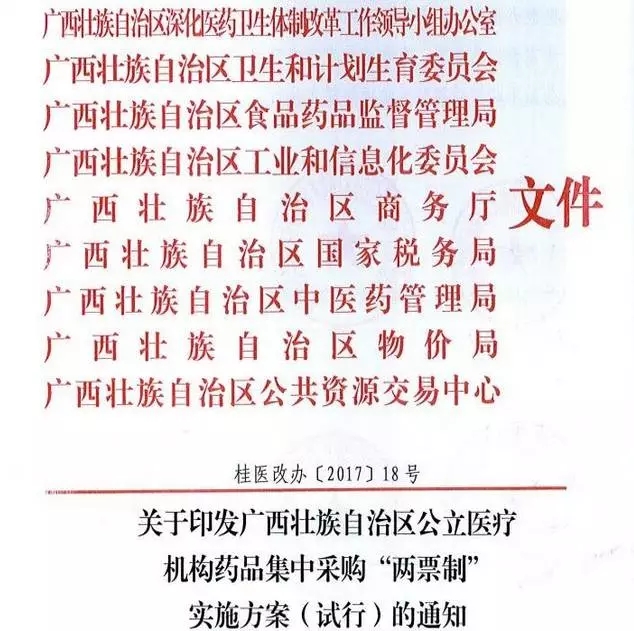 广西壮族自治区深化医药卫生体制改革工作领导小组办公室
广西壮族自治区卫生和计划生育委员会
广西壮族自治区食品药品监督管理局
广西壮族自治区工业和信息化委员会
广西壮族自治区商务厅
广西壮族自治区国家税务局
广西壮族自治区中医药管理局
广西壮族自治区物价局
广西壮族自治区公共资源交易中心
文件
桂医改办〔2017〕18号
关于印发广西壮族自治区公立医疗
机构药品集中采购“两票制”
实施方案（试行）的通知